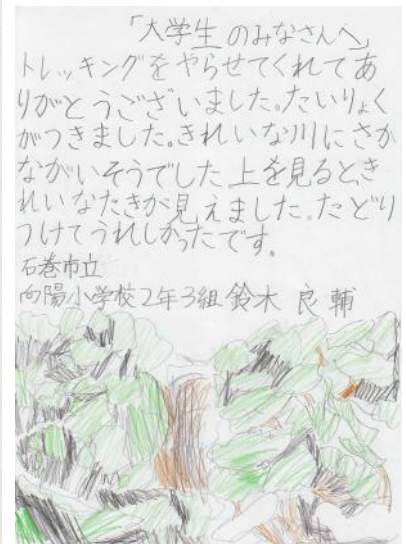 「大学生のみなさんへ」
トレッキングをやらせてくれてあ
りがとうございました。たいりょく
がつきました。きれいな川にさか
ながいそうでした。上を見ると、き
れいなたきが見えました。たどり
つけてうれしかったです。
石巻市立
向陽小学校2年3組 鈴木 良輔